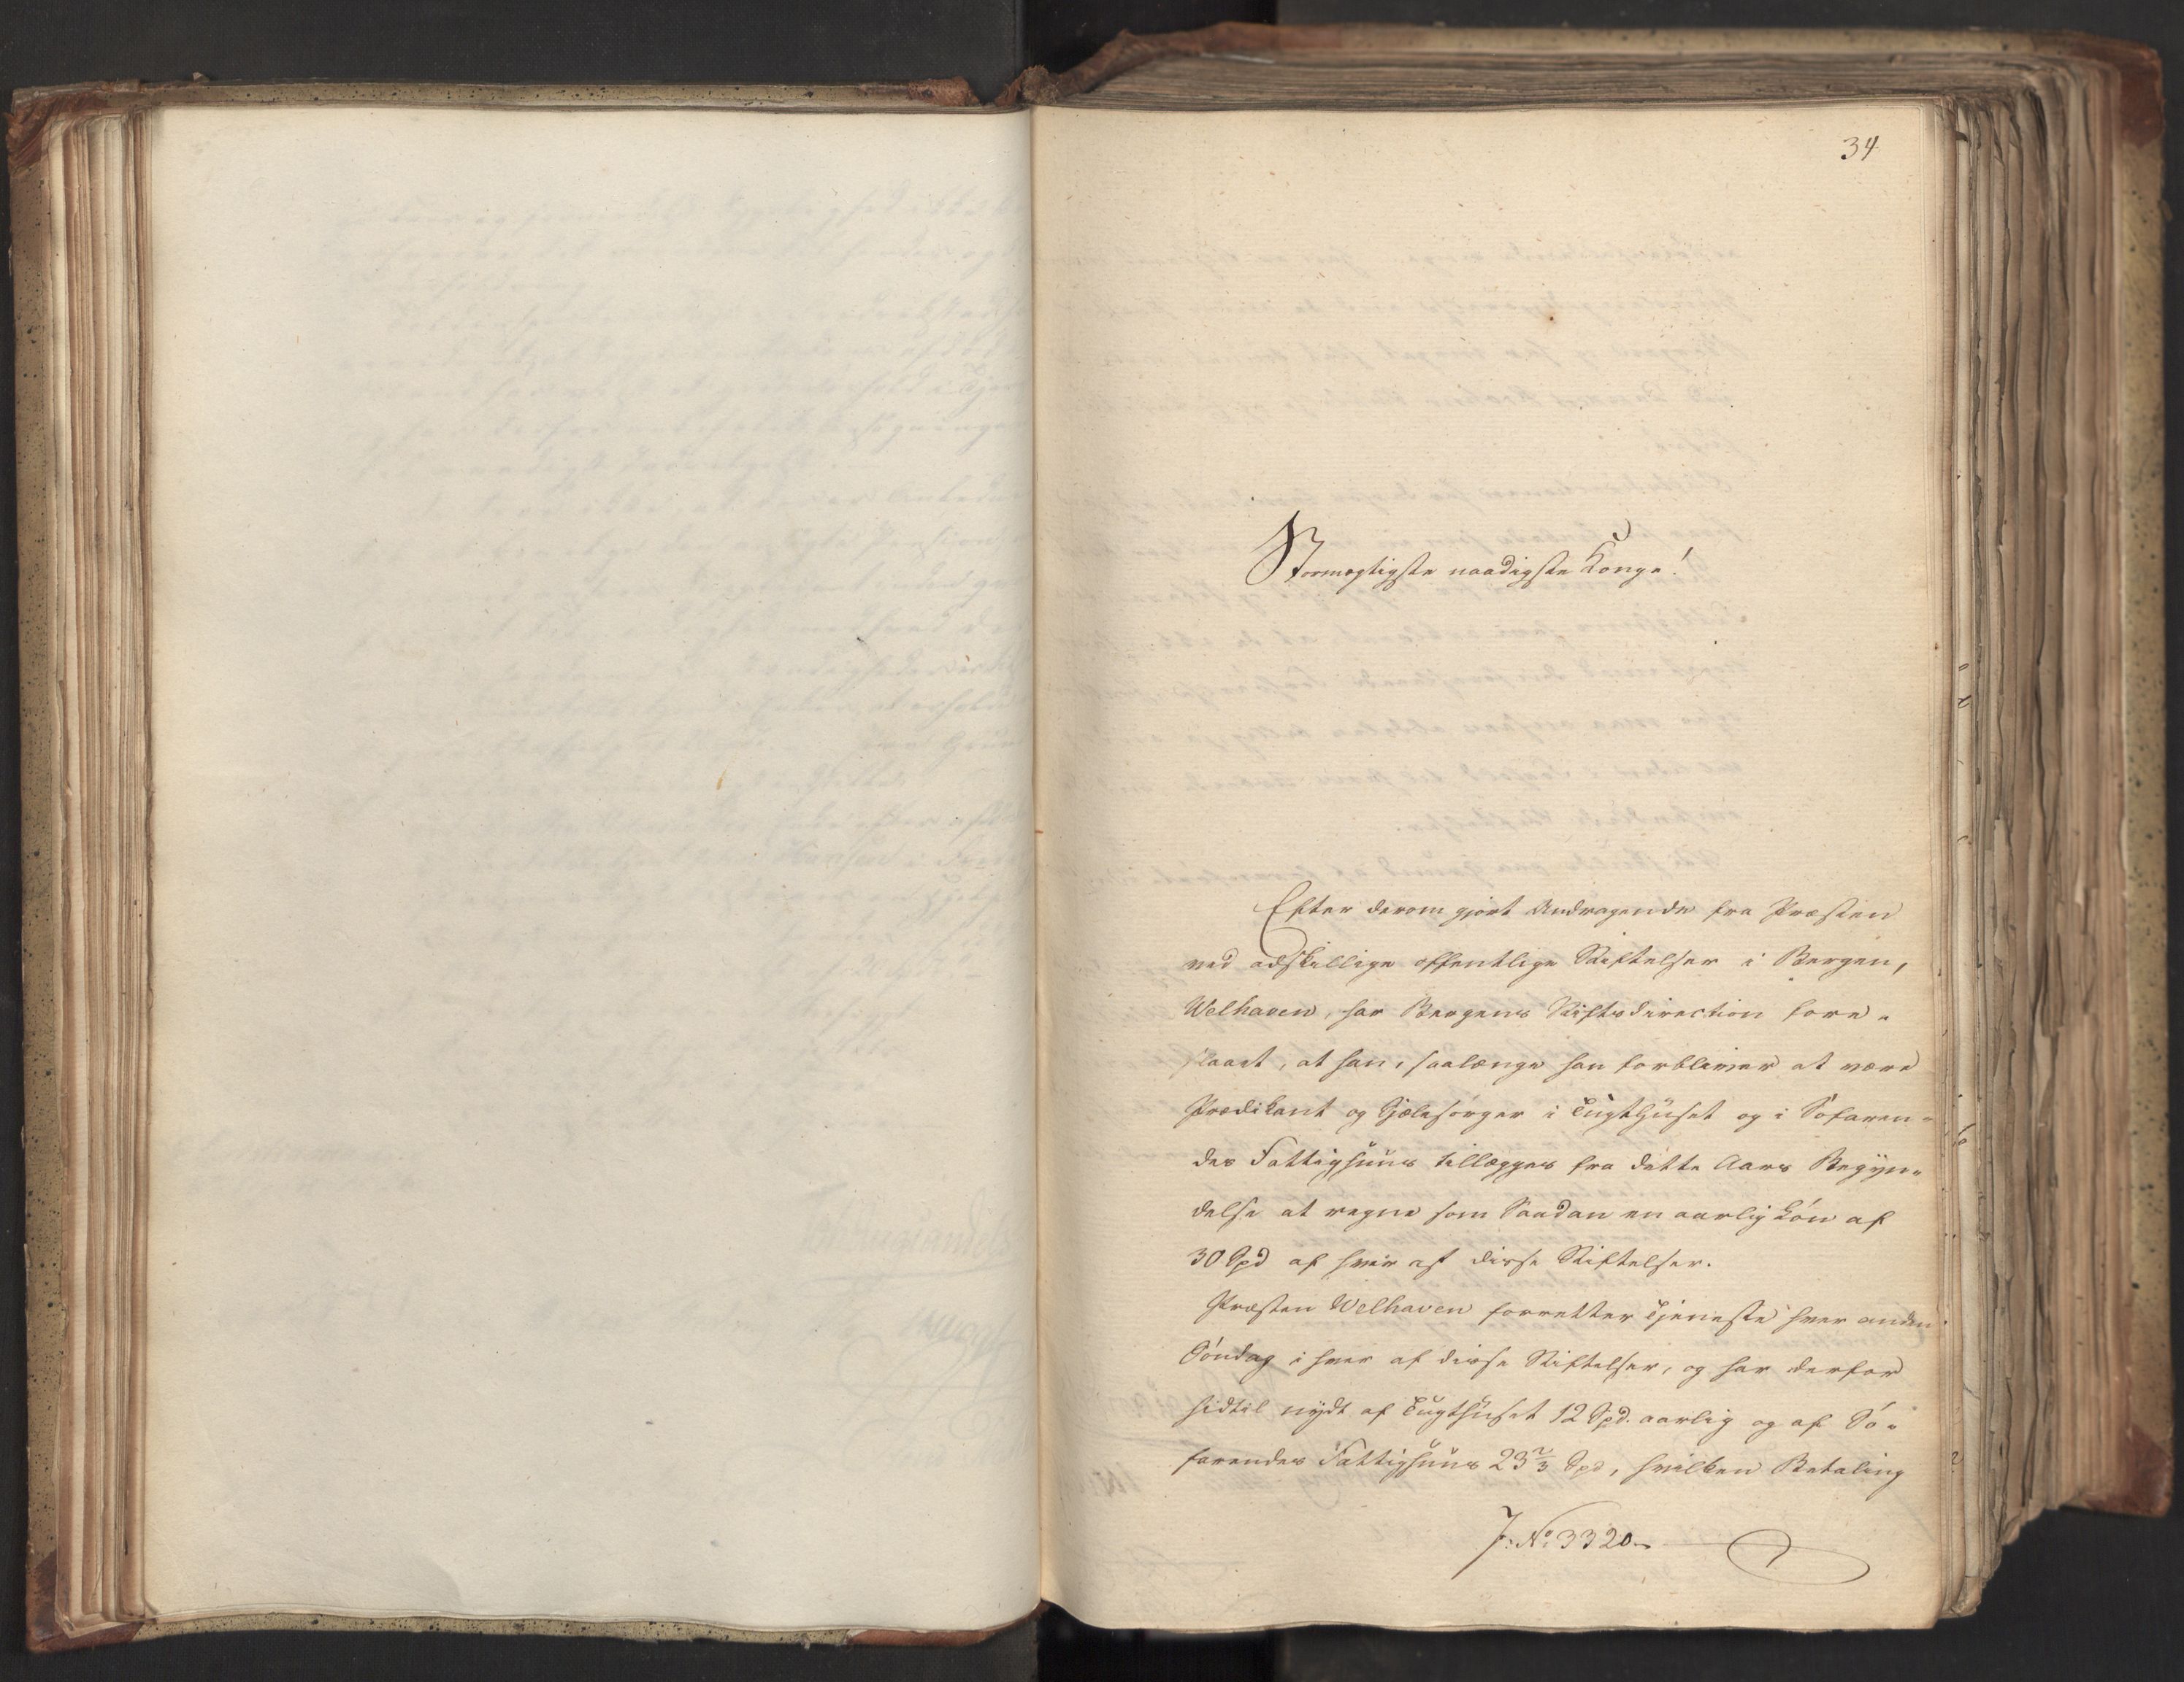 34
Stormægtigste naadigste Konge!
Efter derom gjort Andragende fra Præsten
ved adskillige offentlige Stiftelser i Bergen,
Welhaven, har Bergens Stiftsdirection fore-
slaaet, at han, saalænge han forbliver at være
Prædikant og Sjælesörger i Tugthuset og i Söfaren-
des Fattighuus tillægges fra dette Aars Begyn-
delse at regne som Saadan en aarlig Lön af
30 Spd af hver af disse Stiftelser.
Præsten Welhaven forretter Tjeneste hver anden
Söndag i hver af disse Stiftelser, og har derfor
hidtil nydt af Tugthuset 12 Spd. aarlig og af Sö-
farendes Fattighuus 23 2/3 Spd, hvilken Betaling
J: No 3320.